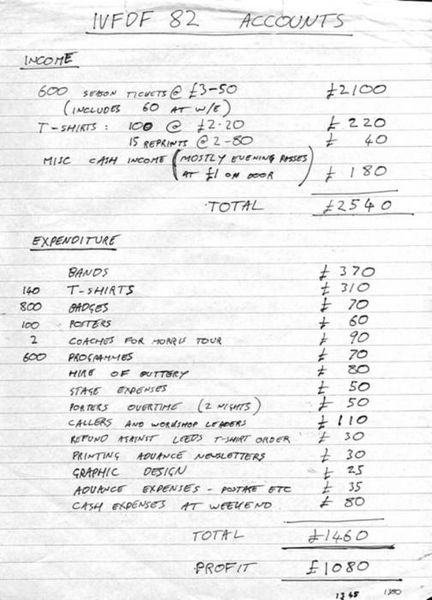 IVFDF 82 ACCOUNTS
INCOME
600 SEASON TICKETS @ £3-50 £2100
(INCLUDES 60 AT W/E)
T-SHIRTS : 100 @ £2.20 £ 220
15 REPRINTS @ 2-80 £ 40
MISC CASH INCOME (MOSTLY EVENING PASSES
AT £1 ON DOOR) £ 180
TOTAL £2540
EXPENDITURE
BANDS £ 370
140 T-SHIRTS £ 310
800 BADGES £ 70
100 POSTERS £ 60
2 COACHES FOR MORRIS TOUR £ 90
600 PROGRAMMES £ 70
HIRE OF BUTTERY £ 80
STAGE EXPENSES £ 50
PORTERS OVERTIME (2 NIGHTS) £ 50
CALLERS AND WORKSHOP LEADERS £ 110
REFUND AGAINST LEEDS T-SHIRT ORDER £ 30
PRINTING ADVANCE NEWSLETTERS £ 30
GRAPHIC DESIGN £ 25
ADVANCE EXPENSES - POSTAGE ETC £ 35
CASH EXPENSES AT WEEKEND £ 80
TOTAL £1460
PROFIT £1080